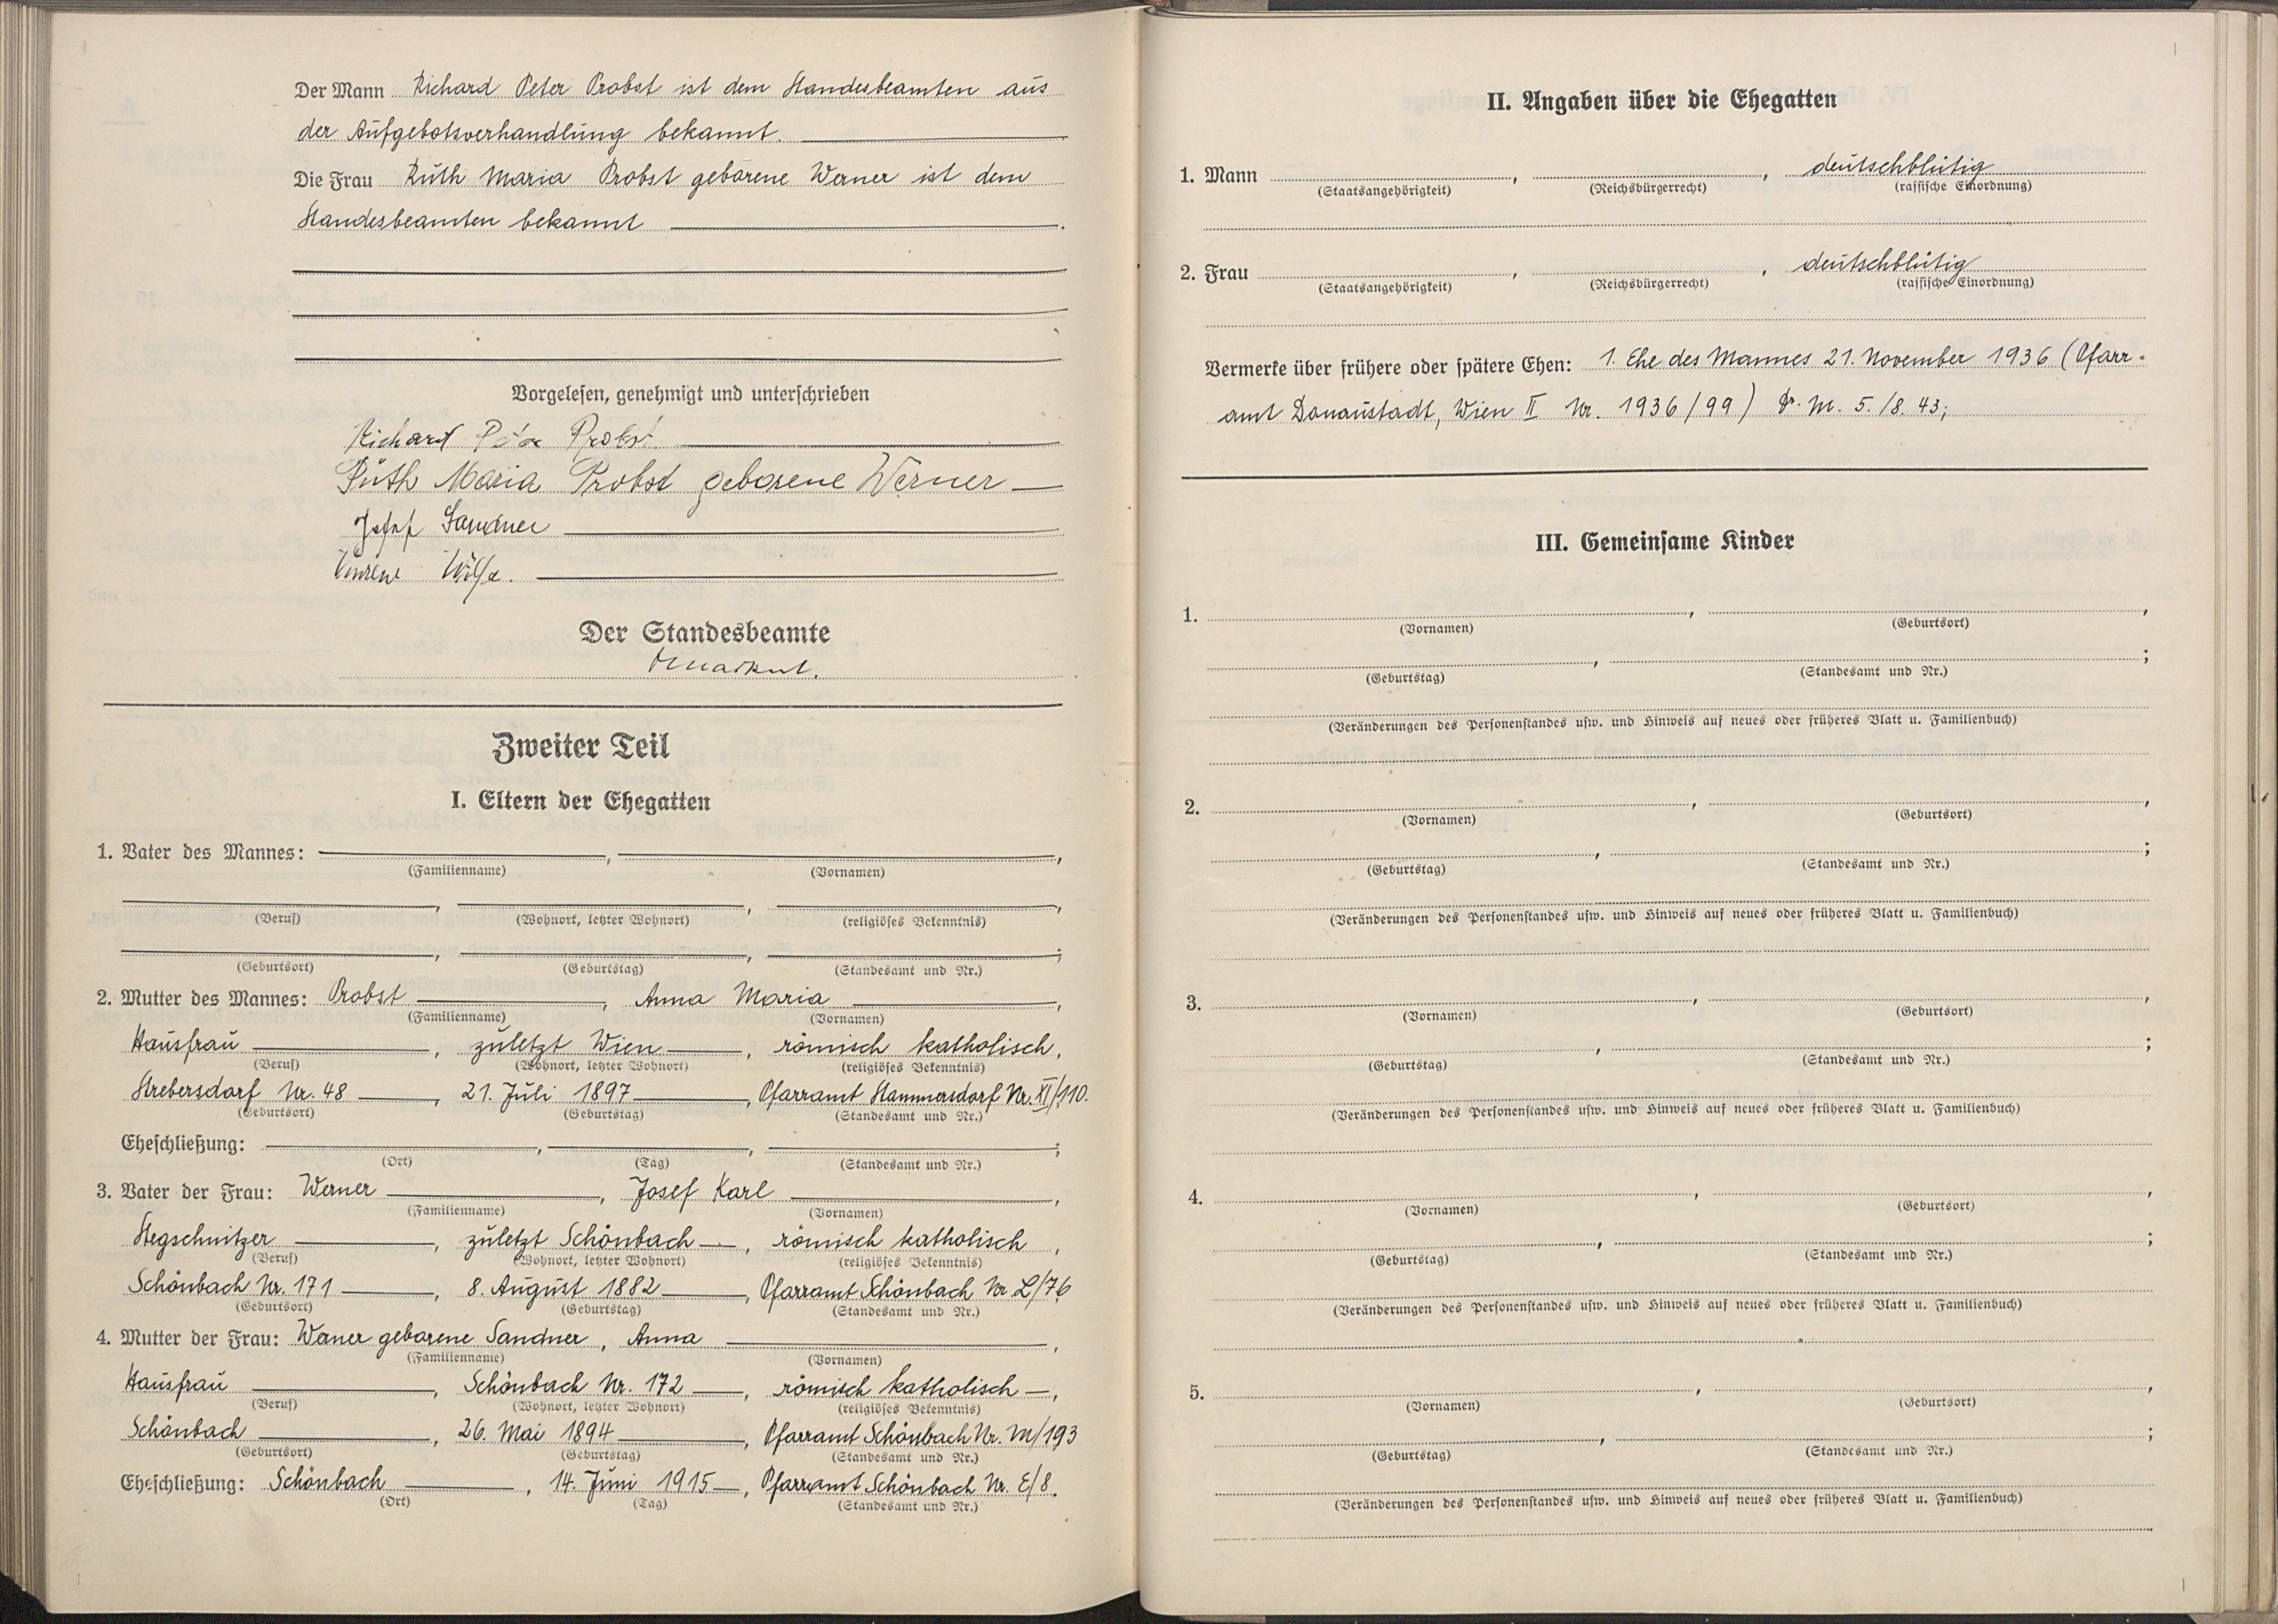 Der Mann Richard Peter Probst ist dem Standesbeamten aus
der Aufgebotsverhandlung bekannt.
Die Frau Ruth Maria Probst geborene Werner ist dem
Standesbeamten bekannt.
Vorgelesen, genehmigt und unterschrieben
Richard Peter Probst
Ruth Maria Probst geborene Werner
Josef Sandner
Der Standesbeamte
Zweiter Teil
I. Eltern der Ehegatten
1. Vater des Mannes: ,
(Familienname) (Vornamen)
(Beruf) (Wohnort, letzter Wohnort) (religiöses Bekenntnis)
(Geburtsort) (Geburtstag) (Standesamt und Nr.)
2. Mutter des Mannes: Probst, Anna Maria,
(Familienname) (Vornamen)
Hausfrau, zuletzt Wien, römisch katholisch,
(Beruf) (Wohnort, letzter Wohnort) (religiöses Bekenntnis)
Strebersdorf Nr. 48, 21. Juli 1897, Pfarramt Stammersdorf Nr. XI/110.
(Geburtsort) (Geburtstag) (Standesamt und Nr.)
Eheschließung: , , ;
(Ort) (Tag) (Standesamt und Nr.)
3. Vater der Frau: Werner, Josef Karl,
(Familienname) (Vornamen)
Stegschnitzer, zuletzt Schönbach, römisch katholisch,
(Beruf) (Wohnort, letzter Wohnort) (religiöses Bekenntnis)
Schönbach Nr. 171, 8. August 1882, Pfarramt Schönbach Nr. L/76
(Geburtsort) (Geburtstag) (Standesamt und Nr.)
4. Mutter der Frau: Werner geborene Sandner, Anna,
(Familienname) (Vornamen)
Hausfrau, Schönbach Nr. 172, römisch katholisch,
(Beruf) (Wohnort, letzter Wohnort) (religiöses Bekenntnis)
Schönbach, 26. Mai 1894, Pfarramt Schönbach Nr. M/193
(Geburtsort) (Geburtstag) (Standesamt und Nr.)
Eheschließung: Schönbach, 14. Juni 1915, Pfarramt Schönbach Nr. E/8.
(Ort) (Tag) (Standesamt und Nr.)
II. Angaben über die Ehegatten
1. Mann , , deutschblütig
(Staatsangehörigkeit) (Reichsbürgerrecht) (rassische Einordnung)
2. Frau , , deutschblütig
(Staatsangehörigkeit) (Reichsbürgerrecht) (rassische Einordnung)
Vermerke über frühere oder spätere Ehen: 1. Ehe des Mannes 21. November 1936 (Pfarr-
amt Donaustadt, Wien II Nr. 1936/99) 5./8. 43;
III. Gemeinsame Kinder
1. , ,
(Vornamen) (Geburtsort)
(Geburtstag) (Standesamt und Nr.)
(Veränderungen des Personenstandes usw. und Hinweis auf neues oder früheres Blatt u. Familienbuch)
2. , ,
(Vornamen) (Geburtsort)
(Geburtstag) (Standesamt und Nr.)
(Veränderungen des Personenstandes usw. und Hinweis auf neues oder früheres Blatt u. Familienbuch)
3. , ,
(Vornamen) (Geburtsort)
(Geburtstag) (Standesamt und Nr.)
(Veränderungen des Personenstandes usw. und Hinweis auf neues oder früheres Blatt u. Familienbuch)
4. , ,
(Vornamen) (Geburtsort)
(Geburtstag) (Standesamt und Nr.)
(Veränderungen des Personenstandes usw. und Hinweis auf neues oder früheres Blatt u. Familienbuch)
5. , ,
(Vornamen) (Geburtsort)
(Geburtstag) (Standesamt und Nr.)
(Veränderungen des Personenstandes usw. und Hinweis auf neues oder früheres Blatt u. Familienbuch)